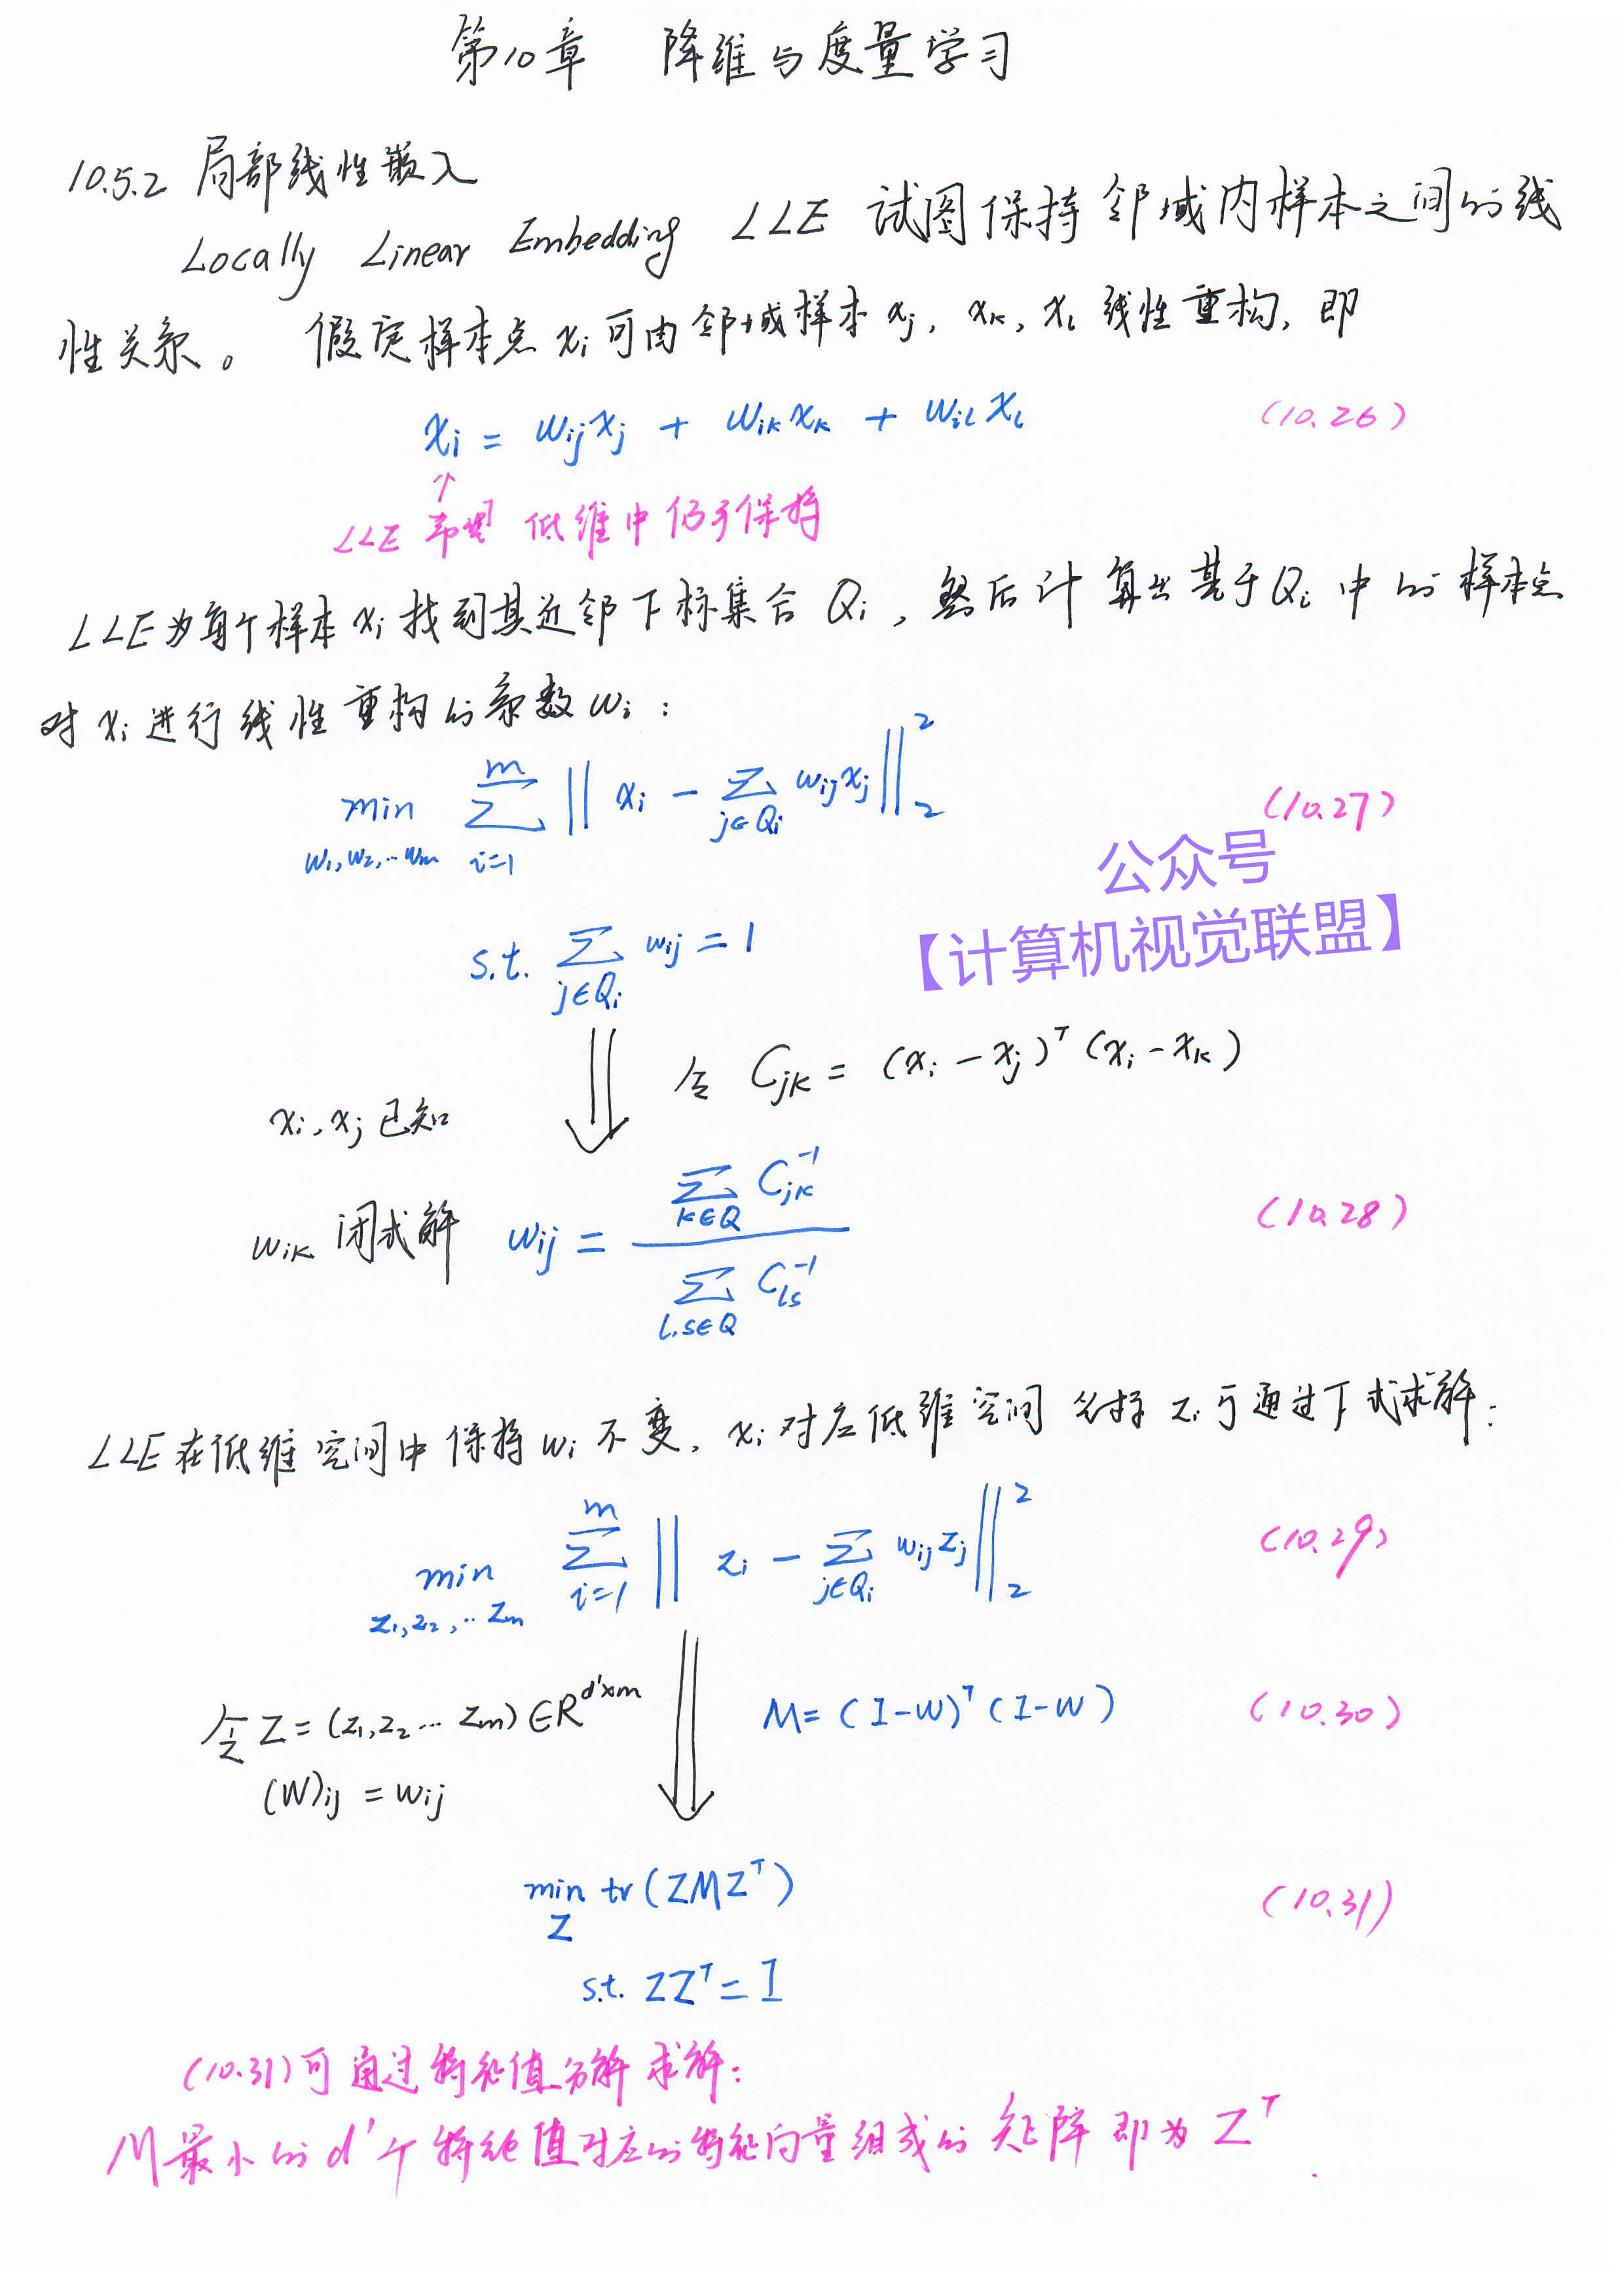 第10章 降维与度量学习
10.5.2 局部线性嵌入
Locally Linear Embedding LLE 试图保持邻域内样本之间的线
性关系。 假定样本点 xi 可由邻域样本 xj, xk, xl 线性重构, 即
xi = wij xj + wik xk + wil xl (10.26)
↑
LLE 希望 低维中仍予保持
LLE为每个样本 xi 找到其近邻下标集合 Qi, 然后计算出基于Qi 中的样本点
对 xi 进行线性重构的系数 wi:
min_{w1,w2,..wm} Σ_{i=1}^{m} ‖ xi - Σ_{j∈Qi} wij xj ‖_2^2 (10.27)
公众号
s.t. Σ_{j∈Qi} wij = 1 【计算机视觉联盟】
令 Cjk = (xi - xj)^T (xi - xk)
xi, xj 已知
wik 闭式解 wij = Σ_{k∈Q} C_{jk}^{-1} / Σ_{l,s∈Q} C_{ls}^{-1} (10.28)
LLE在低维空间中保持 wi 不变, xi 对应低维空间坐标 zi 可通过下式求解:
min_{z1,z2,..zm} Σ_{i=1}^{m} ‖ zi - Σ_{j∈Qi} wij zj ‖_2^2 (10.29)
令 Z = (z1,z2...zm) ∈ R^{d'×m} M = (I-W)^T (I-W) (10.30)
(W)ij = wij
min_Z tr(ZMZ^T) (10.31)
s.t. ZZ^T = I
(10.31)可通过特征值分解求解:
M最小的d'个特征值对应的特征向量组成的矩阵即为 Z^T.